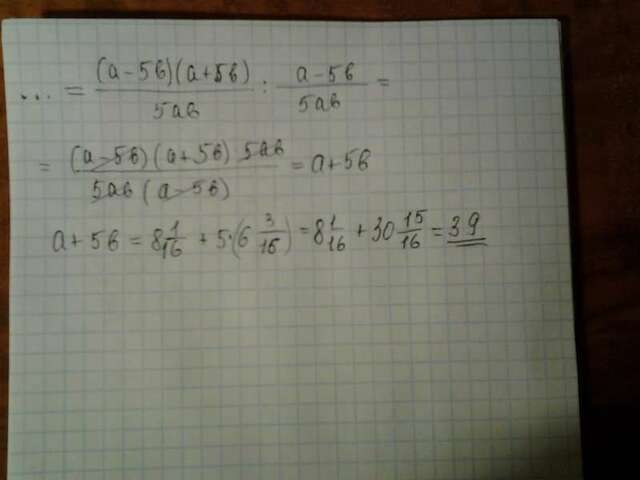 ... = (a-5b)(a+5b)/5ab : a-5b/5ab =
= (a-5b)(a+5b) 5ab/5ab(a-5b) = a+5b
a+5b = 8 1/16 + 5·(6 3/16) = 8 1/16 + 30 15/16 = 39